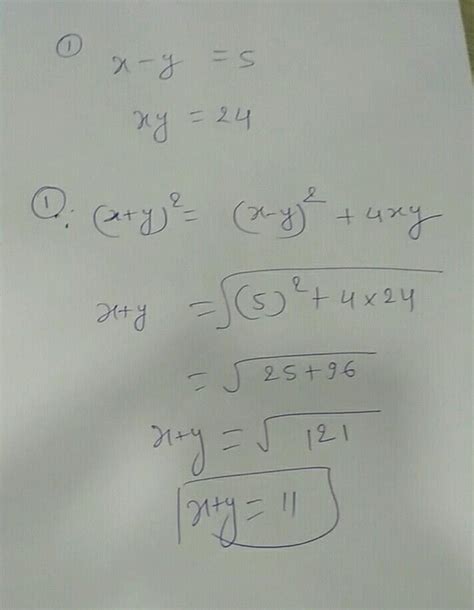 ① x-y = 5
xy = 24
①: (x+y)² = (x-y)² + 4xy
x+y = √(5)² + 4×24
= √25+96
x+y = √121
x+y = 11